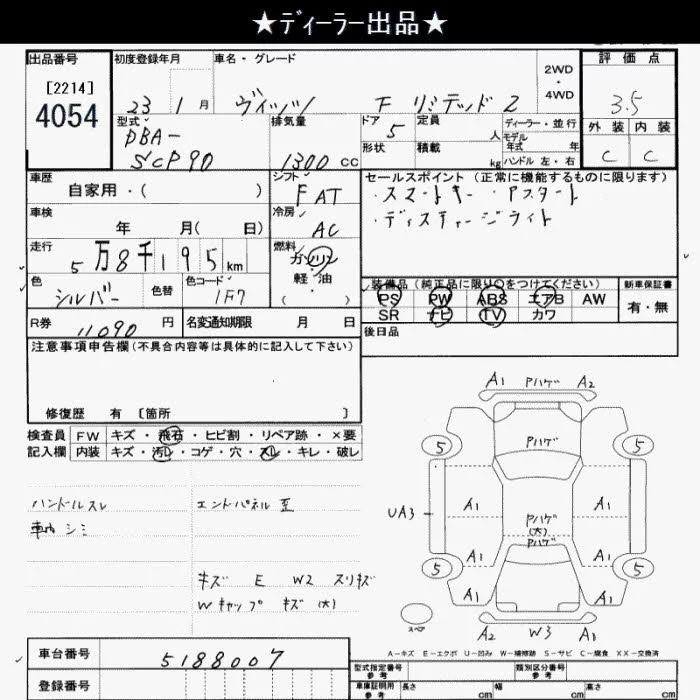 ★ディーラー出品★
出品番号
[2214]
4054
初度登録年月
23 1 月
車名・グレード
ヴィッツ F リミテッド 2
2WD
・
4WD
評価点
3.5
外装 内装
C C
型式
DBA-
SCP90
排気量
1300 cc
ドア 5
形状
定員 人
積載 kg
ディーラー・並行
モデル
年式 年
ハンドル 左・右
車歴
自家用・( )
シフト
FAT
セールスポイント(正常に機能するものに限ります)
・スマートキー ・アスタート
・ディスチャージライト
車検
年 月( 日)
冷房
AC
走行
5万8千195 km
燃料
ガソリン
軽・油
( )
色
シルバー
色替
色コード
1F7
装備品(純正品に限り○をつけてください)
PS PW ABS エアB AW
SR ナビ TV カワ
新車保証書
有・無
R券
11,090 円
名変通知期限 月 日
後日品
注意事項申告欄(不具合内容等は具体的に記入して下さい)
修復歴 有 〔箇所 〕
検査員 FW キズ・飛石・ヒビ割・リペア跡・×要
記入欄 内装 キズ・汚レ・コゲ・穴・スレ・キレ・破レ
ハンドルスレ
車内シミ
エンドパネル 歪
キズ E W2 スリキズ
Wキャップ キズ(大)
A1 Pハゲ A2
5 Pハゲ 5
UA3 A1 Pハゲ A1
(大)
Pハゲ
A1 A1
5 5
A1 A1
スペア
A2 W3 A1
A-キズ E-エクボ U-凹み W-補修跡 S-サビ C-腐食 XX-交換済
車台番号
5188007
登録番号
型式指定番号
参考
類別区分番号
参考
車庫証明用
参考
長さ cm
幅 cm
高さ cm